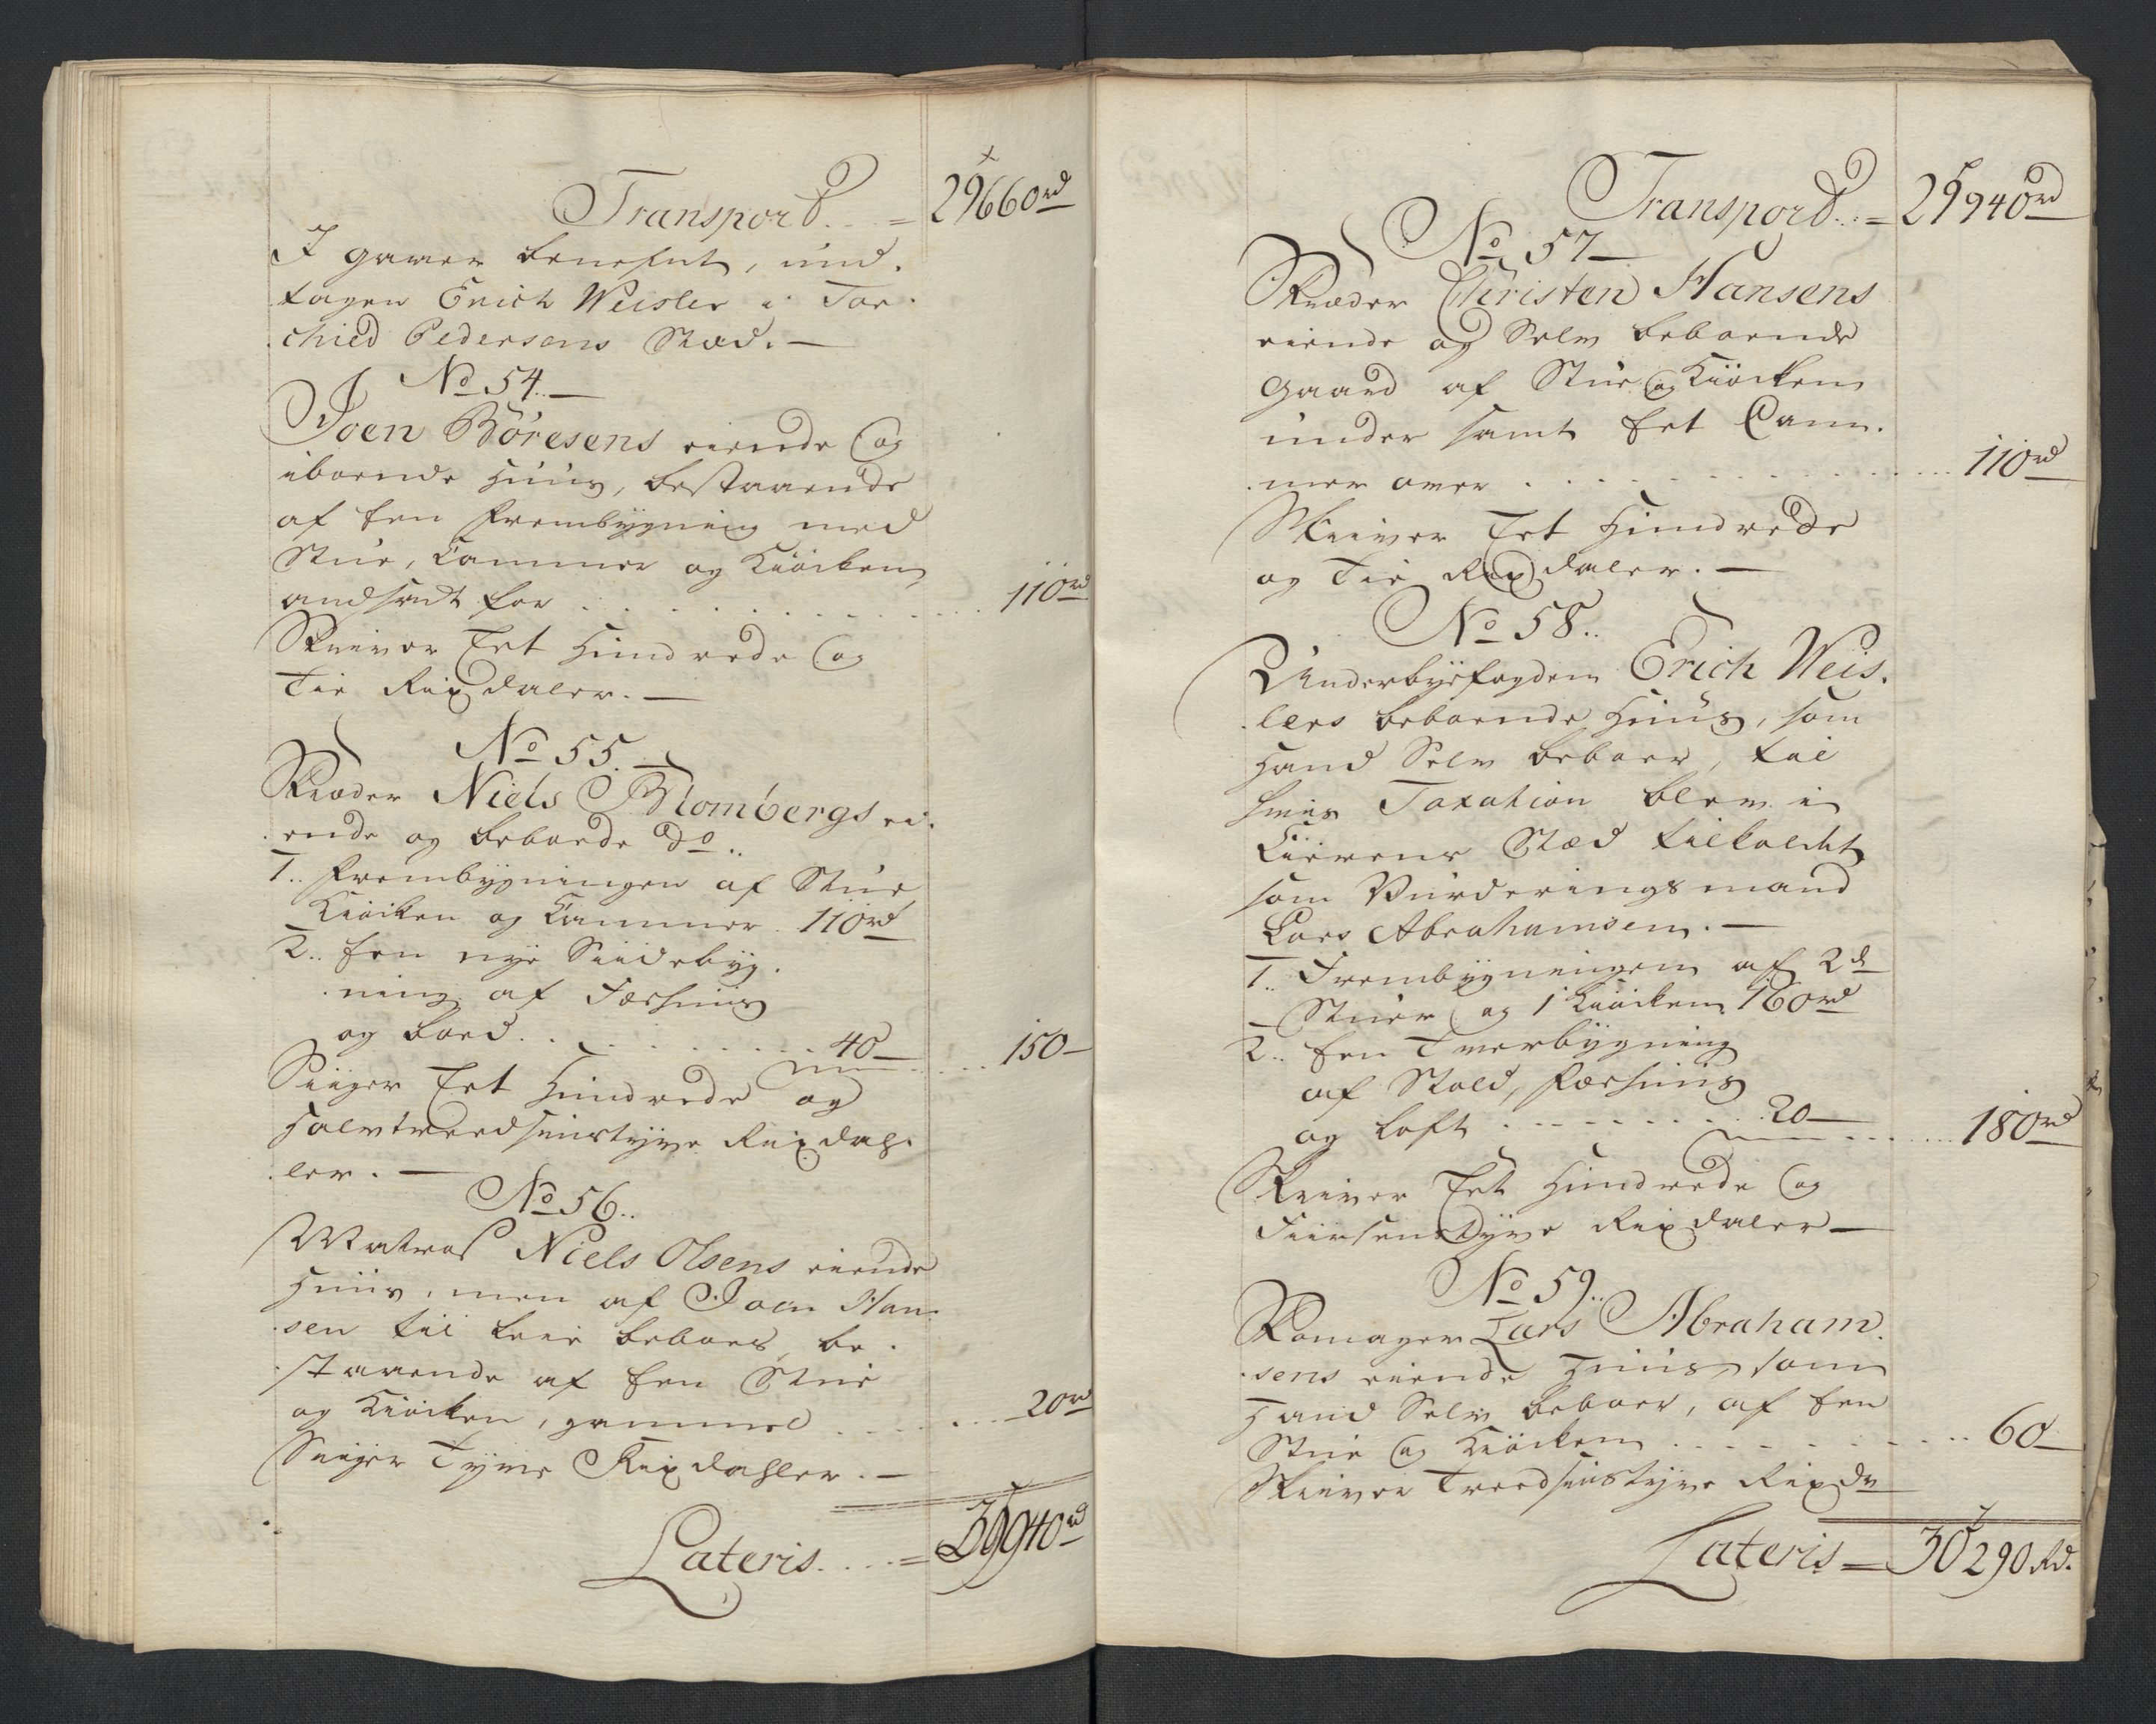 Transport. . . = 29660 rd
I gaver benefnt, und-
tagen Erich Weisler i Tor-
chied Pedersens Stæd. —
No 54. —
Joen Böresens eiende og
iboende Huus, bestaaende
af Een Frembygning med
Stue, Cammer og Kiöcken
andsadt for . . . . . . . . . 110 rd
Skriver Eet Hundrede og
Tie Rixdaler. —
No 55. —
Skræder Niels Blombergs ei-
ende og beboede do..
1.. Frembygningen af Stue
Kiöcken og Cammer. 110 rd
2.. Een nye Siidebyg-
ning af Fæehuus
og boed. . . . . . . . . 40 — . . . 150 —
Siiger Eet Hundrede og
Halvtreedsinstyve Rixdah-
ler. —
No 56..
Matros Niels Olsens eiende
Huus, men af Joen Han-
sen til leie beboes, be-
staaende af Een Stue
og Kiöcken, gammel . . . . . 20 rd
Siiger Tyve Rixdahler. —
Lateris. . . . = 29940 rd
Transport. . . = 29940 rd
No 57 —
Skræder Christen Hansens
eiende og Selv beboende
Gaard af Stue og Kiöcken
under samt Eet Cam-
mer over . . . . . . . . . . 110 rd
Skriver Eet Hundrede
og Tie Rixdaler. —
No 58..
Underbyefogden Erich Weis-
lers beboende Huus, som
Hand Selv beboer, til
hvis Taxation blev i
Eierens Stæd tilkaldet
som Vurderingsmand
Lars Abrahamsen. —
1.. Frembygningen af 2de
Stuer og 1 Kiöcken 160 rd
2.. Een Tverbygning
af Stald, Fæehuus
og loft . . . . . . . . 20 — . . . 180 rd
Skriver Eet Hundrede og
Fiirsenstyve Rixdaler —
No 59..
Skomager Lars Abraham-
sens eiende Huus, som
Hand Selv beboer, af Een
Stue og Kiöcken . . . . . . . . 60 —
Skriver Treedsinstyve Rixdr
Lateris = 30290 Rd.